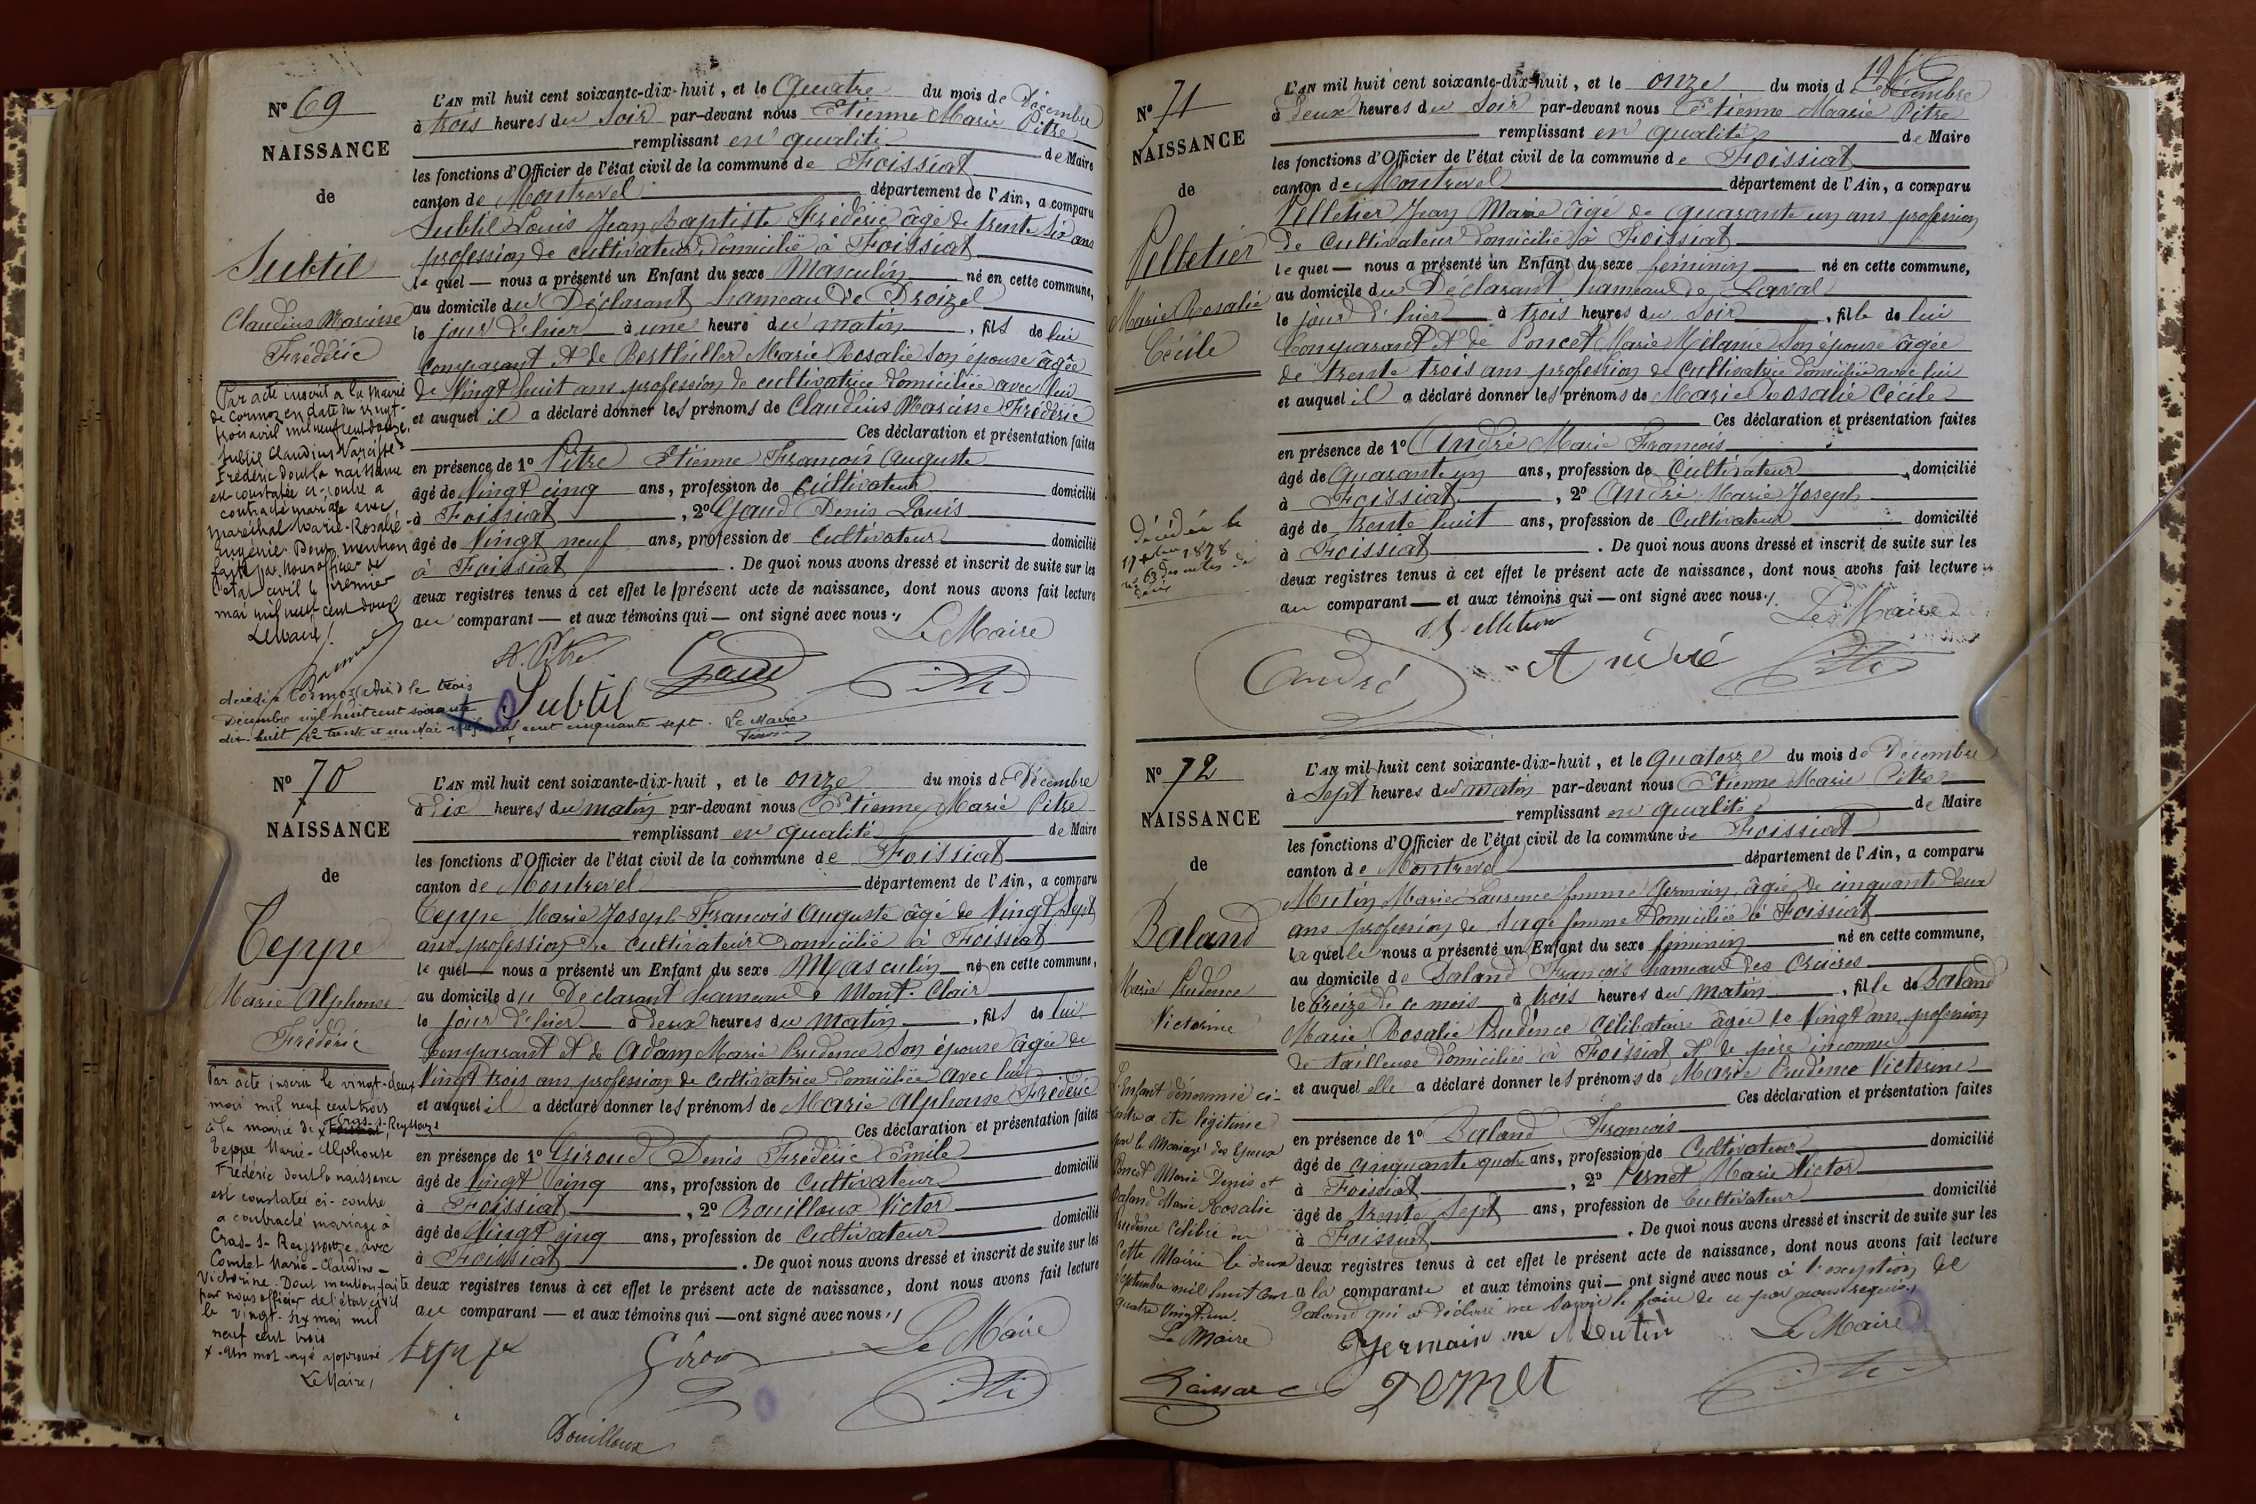 N° 69
NAISSANCE
de
Subtil
Claudius Narcisse
Frédéric
Par acte inscrit à la Mairie
de Cormoz en date du vingt-
trois avril mil neuf cent douze,
Subtil Claudius Narcisse
Frédéric dont la naissance
est constatée ci-contre a
contracté mariage avec
Maréchal Marie-Rosalie-
Eugénie. Dont mention
faite par nous officier de
l'état civil le premier
mai mil neuf cent douze
Le Maire,
L'AN mil huit cent soixante-dix-huit, et le Quatre du mois de Décembre
à trois heures du soir par-devant nous Etienne Marie Pitre
remplissant en qualité de Maire
les fonctions d'Officier de l'état civil de la commune de Foissiat
canton de Montrevel département de l'Ain, a comparu
Subtil Louis Jean Baptiste Frédéric âgé de trente six ans
profession de cultivateur domicilié à Foissiat
le quel — nous a présenté un Enfant du sexe Masculin né en cette commune,
au domicile du Déclarant hameau de Droizel
le jour d'hier à une heure du matin, fils de lui
Comparant et de Berthillier Marie Rosalie son épouse âgée
de Vingt huit ans profession de cultivatrice domiciliée avec lui
et auquel il a déclaré donner les prénoms de Claudius Narcisse Frédéric
Ces déclaration et présentation faites
en présence de 1° Pitre Etienne François Auguste
âgé de Vingt cinq ans, profession de Cultivateur domicilié
à Foissiat, 2° Gaud Denis Louis
âgé de Vingt neuf ans, profession de Cultivateur domicilié
à Foissiat. De quoi nous avons dressé et inscrit de suite sur les
deux registres tenus à cet effet le présent acte de naissance, dont nous avons fait lecture
au comparant — et aux témoins qui — ont signé avec nous.
Le Maire
A. Pitre
Gaud
Subtil
décédé à Cormoz (Ain) le trois
Décembre mil huit cent soixante
dix-huit le trente et un Mai cent cinquante sept. Le Maire
N° 70
NAISSANCE
de
Teppe
Marie Alphonse
Frédéric
Par acte inscrit le vingt-deux
mai mil neuf cent trois
à la mairie de x Foissiat, Cras-s-Reyssouze
Teppe Marie-Alphonse
Frédéric dont la naissance
est constatée ci-contre
a contracté mariage à
Cras-s-Reyssouze avec
Comtet Marie-Claudine-
Victorine. Dont mention faite
par nous officier de l'état civil
le vingt-six mai mil
neuf cent trois
x Un mot rayé approuvé
Le Maire,
L'AN mil huit cent soixante-dix-huit, et le onze du mois de Décembre
à dix heures du matin par-devant nous Etienne Marie Pitre
remplissant en qualité de Maire
les fonctions d'Officier de l'état civil de la commune de Foissiat
canton de Montrevel département de l'Ain, a comparu
Teppe Marie Joseph François Auguste âgé de Vingt Sept
ans profession de cultivateur domicilié à Foissiat
le quel — nous a présenté un Enfant du sexe Masculin né en cette commune,
au domicile du Déclarant hameau de Mont-Clair
le jour d'hier à deux heures du Matin, fils de lui
Comparant et de Adam Marie Prudence son épouse âgée de
Vingt trois ans profession de cultivatrice domiciliée avec lui
et auquel il a déclaré donner les prénoms de Marie Alphonse Frédéric
Ces déclaration et présentation faites
en présence de 1° Giroud Denis Frédéric Emile
âgé de Vingt cinq ans, profession de Cultivateur domicilié
à Foissiat, 2° Bouilloux Victor
âgé de Vingt cinq ans, profession de Cultivateur domicilié
à Foissiat. De quoi nous avons dressé et inscrit de suite sur les
deux registres tenus à cet effet le présent acte de naissance, dont nous avons fait lecture
au comparant — et aux témoins qui — ont signé avec nous.
Le Maire
Teppe
Girou
Bouilloux
N° 71
NAISSANCE
de
Pelletier
Marie Rosalie
Cécile
décédée le
17 Xbre 1878
n° 63 des actes de
décès
L'AN mil huit cent soixante-dix-huit, et le onze du mois de Décembre
à deux heures du soir par-devant nous Etienne Marie Pitre
remplissant en qualité de Maire
les fonctions d'Officier de l'état civil de la commune de Foissiat
canton de Montrevel département de l'Ain, a comparu
Pelletier Jean Marie âgé de quarante un ans profession
de cultivateur domicilié à Foissiat
le quel — nous a présenté un Enfant du sexe féminin né en cette commune,
au domicile du Déclarant hameau de Laval
le jour d'hier à trois heures du soir, fille de lui
Comparant et de Poncet Marie Mélanie son épouse âgée
de trente trois ans profession de cultivatrice domiciliée avec lui
et auquel il a déclaré donner les prénoms de Marie Rosalie Cécile
Ces déclaration et présentation faites
en présence de 1° André Marie François
âgé de Quarante un ans, profession de Cultivateur domicilié
à Foissiat, 2° André Marie Joseph
âgé de trente huit ans, profession de Cultivateur domicilié
à Foissiat. De quoi nous avons dressé et inscrit de suite sur les
deux registres tenus à cet effet le présent acte de naissance, dont nous avons fait lecture
au comparant — et aux témoins qui — ont signé avec nous.
Le Maire
Pelletier
André
André
N° 72
NAISSANCE
de
Baland
Marie Prudence
Victorine
L'Enfant dénommé ci-
contre a été légitimé
par le Mariage des Epoux
Poncet Marie Denis et
Baland Marie Rosalie
Prudence célébré en
cette Mairie le deux
Septembre mil huit cent
quatre vingt un.
Le Maire
L'AN mil huit cent soixante-dix-huit, et le quatorze du mois de Décembre
à Sept heures du matin par-devant nous Etienne Marie Pitre
remplissant en qualité de Maire
les fonctions d'Officier de l'état civil de la commune de Foissiat
canton de Montrevel département de l'Ain, a comparu
Mutin Marie Laurence femme Germain âgée de cinquante deux
ans profession de Sage femme domiciliée à Foissiat
la quelle nous a présenté un Enfant du sexe féminin né en cette commune,
au domicile de Baland François hameau des Craires
le treize de ce mois à trois heures du matin, fille de Baland
Marie Rosalie Prudence Célibataire âgée de Vingt ans profession
de tailleuse domiciliée à Foissiat et de père inconnu
et auquel elle a déclaré donner les prénoms de Marie Prudence Victorine
Ces déclaration et présentation faites
en présence de 1° Baland François
âgé de cinquante quatre ans, profession de Cultivateur domicilié
à Foissiat, 2° Pernet Marie Victor
âgé de trente Sept ans, profession de Cultivateur domicilié
à Foissiat. De quoi nous avons dressé et inscrit de suite sur les
deux registres tenus à cet effet le présent acte de naissance, dont nous avons fait lecture
à la comparante et aux témoins qui — ont signé avec nous à l'exception de
Baland qui a déclaré ne savoir le faire de ce par nous requis.
Le Maire
Germain née Mutin
Pernet